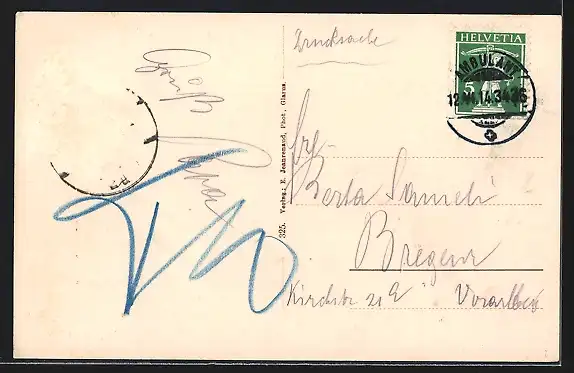 Drucksache
HELVETIA
5
AMBULANT
Gruß
Papa
325. Verlag: E. Jeanrenaud, Phot., Glarus
Frl.
Berta
Bregenz
Kirchstr 21
Vorarlberg